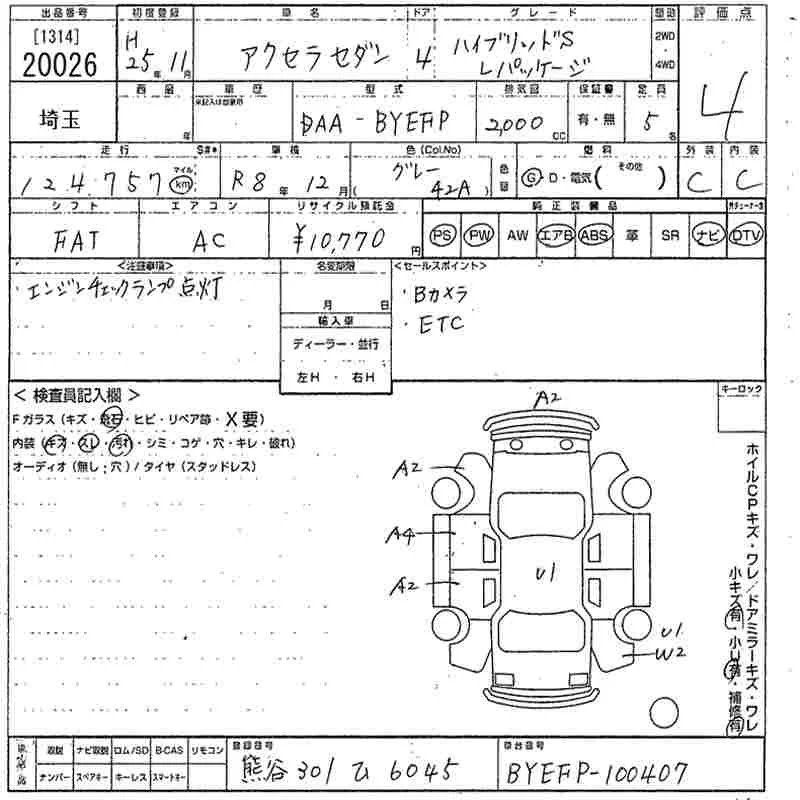 出品番号 初度登録 車名 ドア グレード 駆動 評価点
[1314] 20026 H25年11月 アクセラ セダン 4 ハイブリッドS Lパッケージ 2WD 4WD 4
埼玉 年 車歴 型式 排気量 保証書 定員
未記入は自家用 DAA-BYEFP 2,000cc 有・無 5名
走行 S#* 車検 色(Col,No) 色替 燃料 外装 内装
124,757 マイル km R8年12月 グレー (42A) G・D・電気( その他 ) C C
シフト エアコン リサイクル預託金 純正装備品
FAT AC ¥10,770円 PS PW AW エアB ABS 革 SR ナビ DTV
<注意事項> 名変期限 <セールスポイント>
・エンジンチェックランプ点灯 月 日 ・Bカメラ
・ETC
輸入車
ディーラー・並行
左H・右H
<検査員記入欄> キーロック
Fガラス(キズ・飛石・ヒビ・リペア跡・X要)
内装(キズ・スレ・汚れ・シミ・コゲ・穴・キレ・破れ)
オーディオ(無し・穴)/タイヤ(スタッドレス)
A2
A2
A4
A2
U1
U1
W2
ホイルCPキズ・ワレ/ドアミラーキズ・ワレ
小キズ有・小U有・補修有
取説 ナビ取説 ロム/SD B-CAS リモコン 登録番号 車台番号
ナンバー スペアキー キーレス スマートキー 熊谷301ひ6045 BYEFP-100407